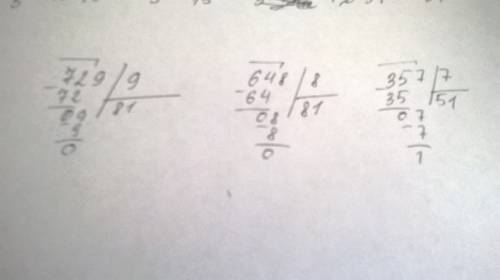 -729 | 9
72 | 81
09
-9
0
-648 | 8
64 | 81
08
-8
0
-357 | 7
35 | 51
07
-7
1